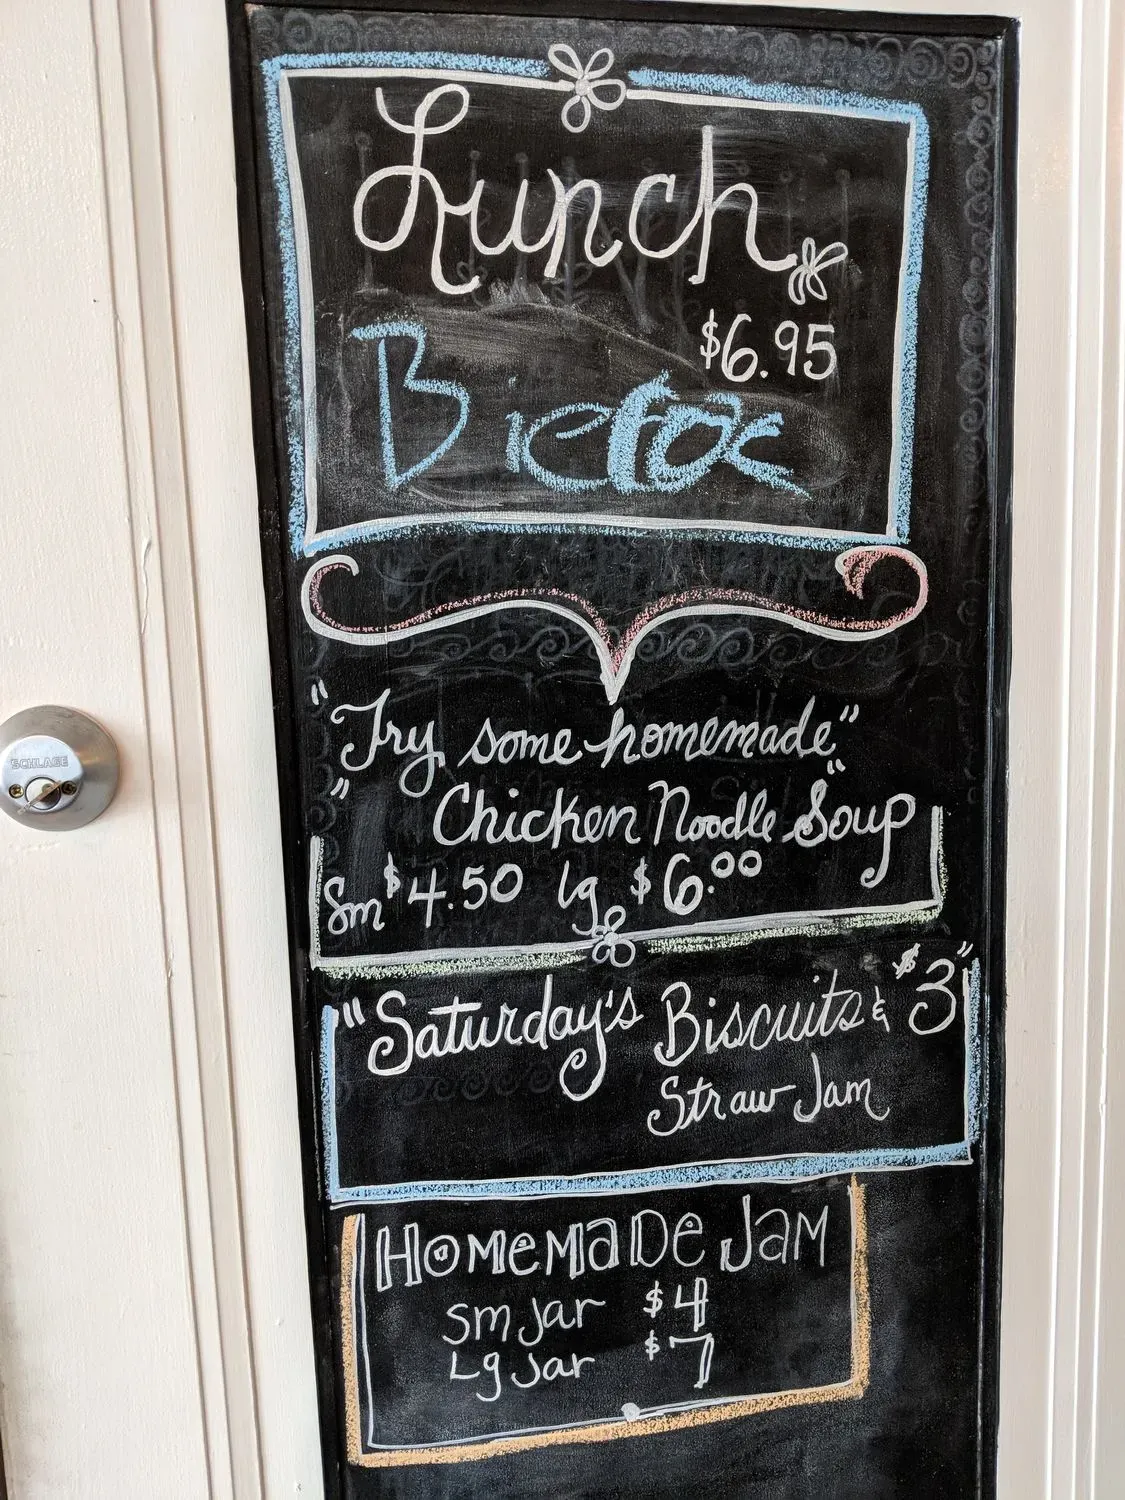 Lunch
$6.95
"Try some homemade"
"Chicken Noodle Soup"
Sm $4.50 lg $6.00
"Saturday's Biscuits & $3"
Straw Jam
HOMEMADE JAM
SM Jar $4
Lg Jar $7
SCHLAGE